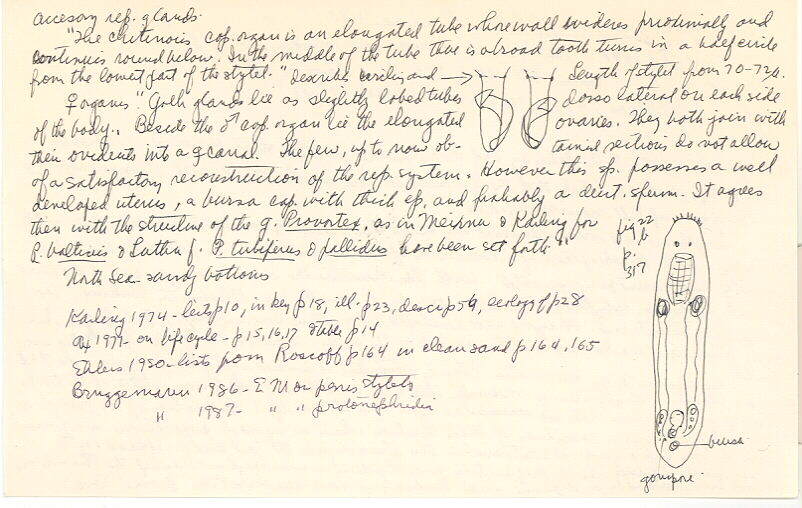 accessory rep. glands.
"The chitinous cop. organ is an elongated tube whose wall widens proximally and
continues round below. In the middle of the tube there is a broad tooth turns in a half circle
from the lowest part of the stylet." Describes and → Length of stylet from 70-72µ.
♀ organs "Yolk glands lie as slightly lobed tubes dorso lateral on each side
of the body. Beside the ♂ cop. organ lie the elongated ovaries. They both join with
their oviducts into a g canal. The few, up to now ob-tained sections do not allow
of a satisfactory reconstruction of the rep. system. However this sp. possesses a well
developed uterus, a bursa cop. with thick ep. and probably a duct. sperm. It agrees
then with the structure of the g. Provortex, as in Meixner & Karling for
P. balticus & Luther f. P. tubiferus & pallidus have been set forth."
North Sea - sandy bottoms
fig 22
b
p.
317
Karling 1974 - lists p10, in key p18, ill. p23, descr p54, ecology of p28
Ax 1977 - on lifecycle - p15, 16, 17 & table p14
Ehlers 1980 - lists from Roscoff p164 in clean sand p164, 165
Bruggemann 1986 - EM on penis stylets
" 1987 - " " protonephridia
bursa
gonopore